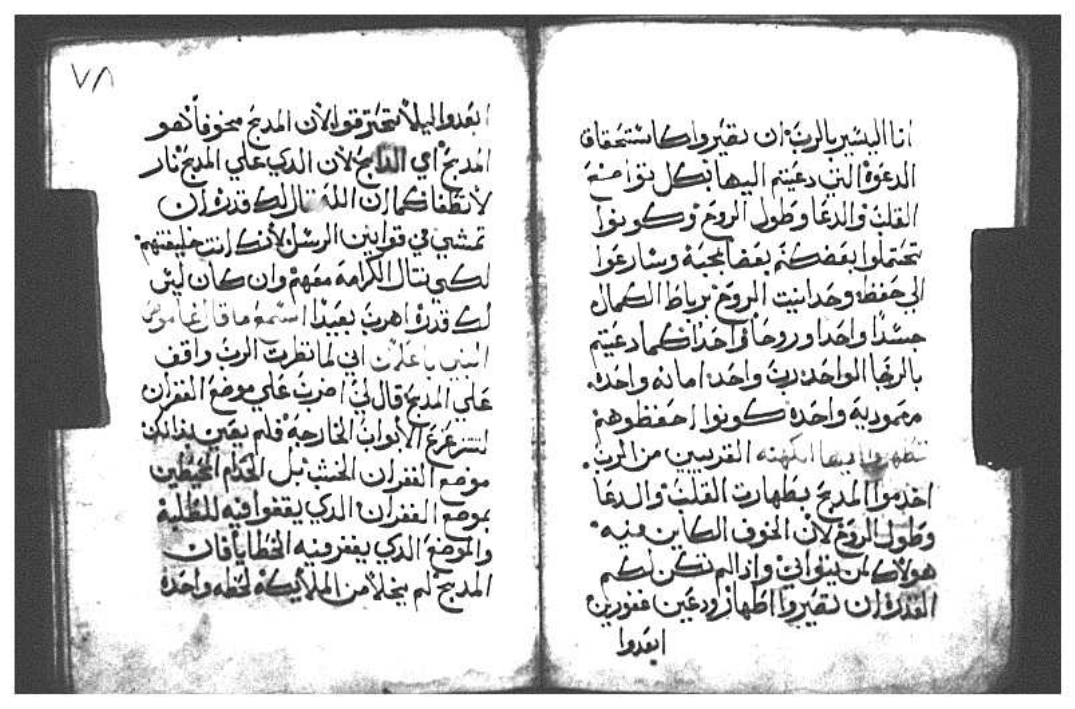 انا اليسير بالرب ان تصيروا كاستحقاق
الدعوة التي دعيتم اليها بكل تواضع
القلب والدعا وطول الروح وكونوا
تحتملوا بعضكم بعضا بمحبة وسارعوا
الي حفظ وحدانيت الروح برباط الكمال
جسدا واحدا وروحا واحدا كما دعيتم
بالرجا الواحد رب واحد امانه واحده
معموديه واحده كونوا احفظوهم
ايها الكهنه القريبين من الرب
اخدموا المدبح بطهارت القلب والدعا
وطول الروح لان الخوف الكاين فيه
هولاك لمن يتوانى واذا لم تكن لكم
القدره ان تصيروا اطهار ودعين غفورين
ابعدوا
٧٨
ابعدوا ليلا تحترقوا لان المدبح مخوفا هو
المدبح اي الدابح لان الدي علي المدبح نار
لا تطفا كما ان الله قال لك قدره ان
تمشي في قوانين الرسل لانك انت خليفتهم
لكي تنال الكرامه معهم وان كان ليس
لك قدره اهرب بعيدا استمع ما قال عاموص
النبي اني لما نظرت الرب واقف
علي المدبح قال لي اضرب علي موضع الغفران
لتتزعزع الابواب الخارجه فلم يعني بذلك
موضع الغفران الخشب بل الخدام المحيطين
بموضع الغفران الدي يقفوا فيه للطلبة
والموضع الدي يغفر فيه الخطايا فان
المدبح لم يخلا من الملايكة لحظه واحده